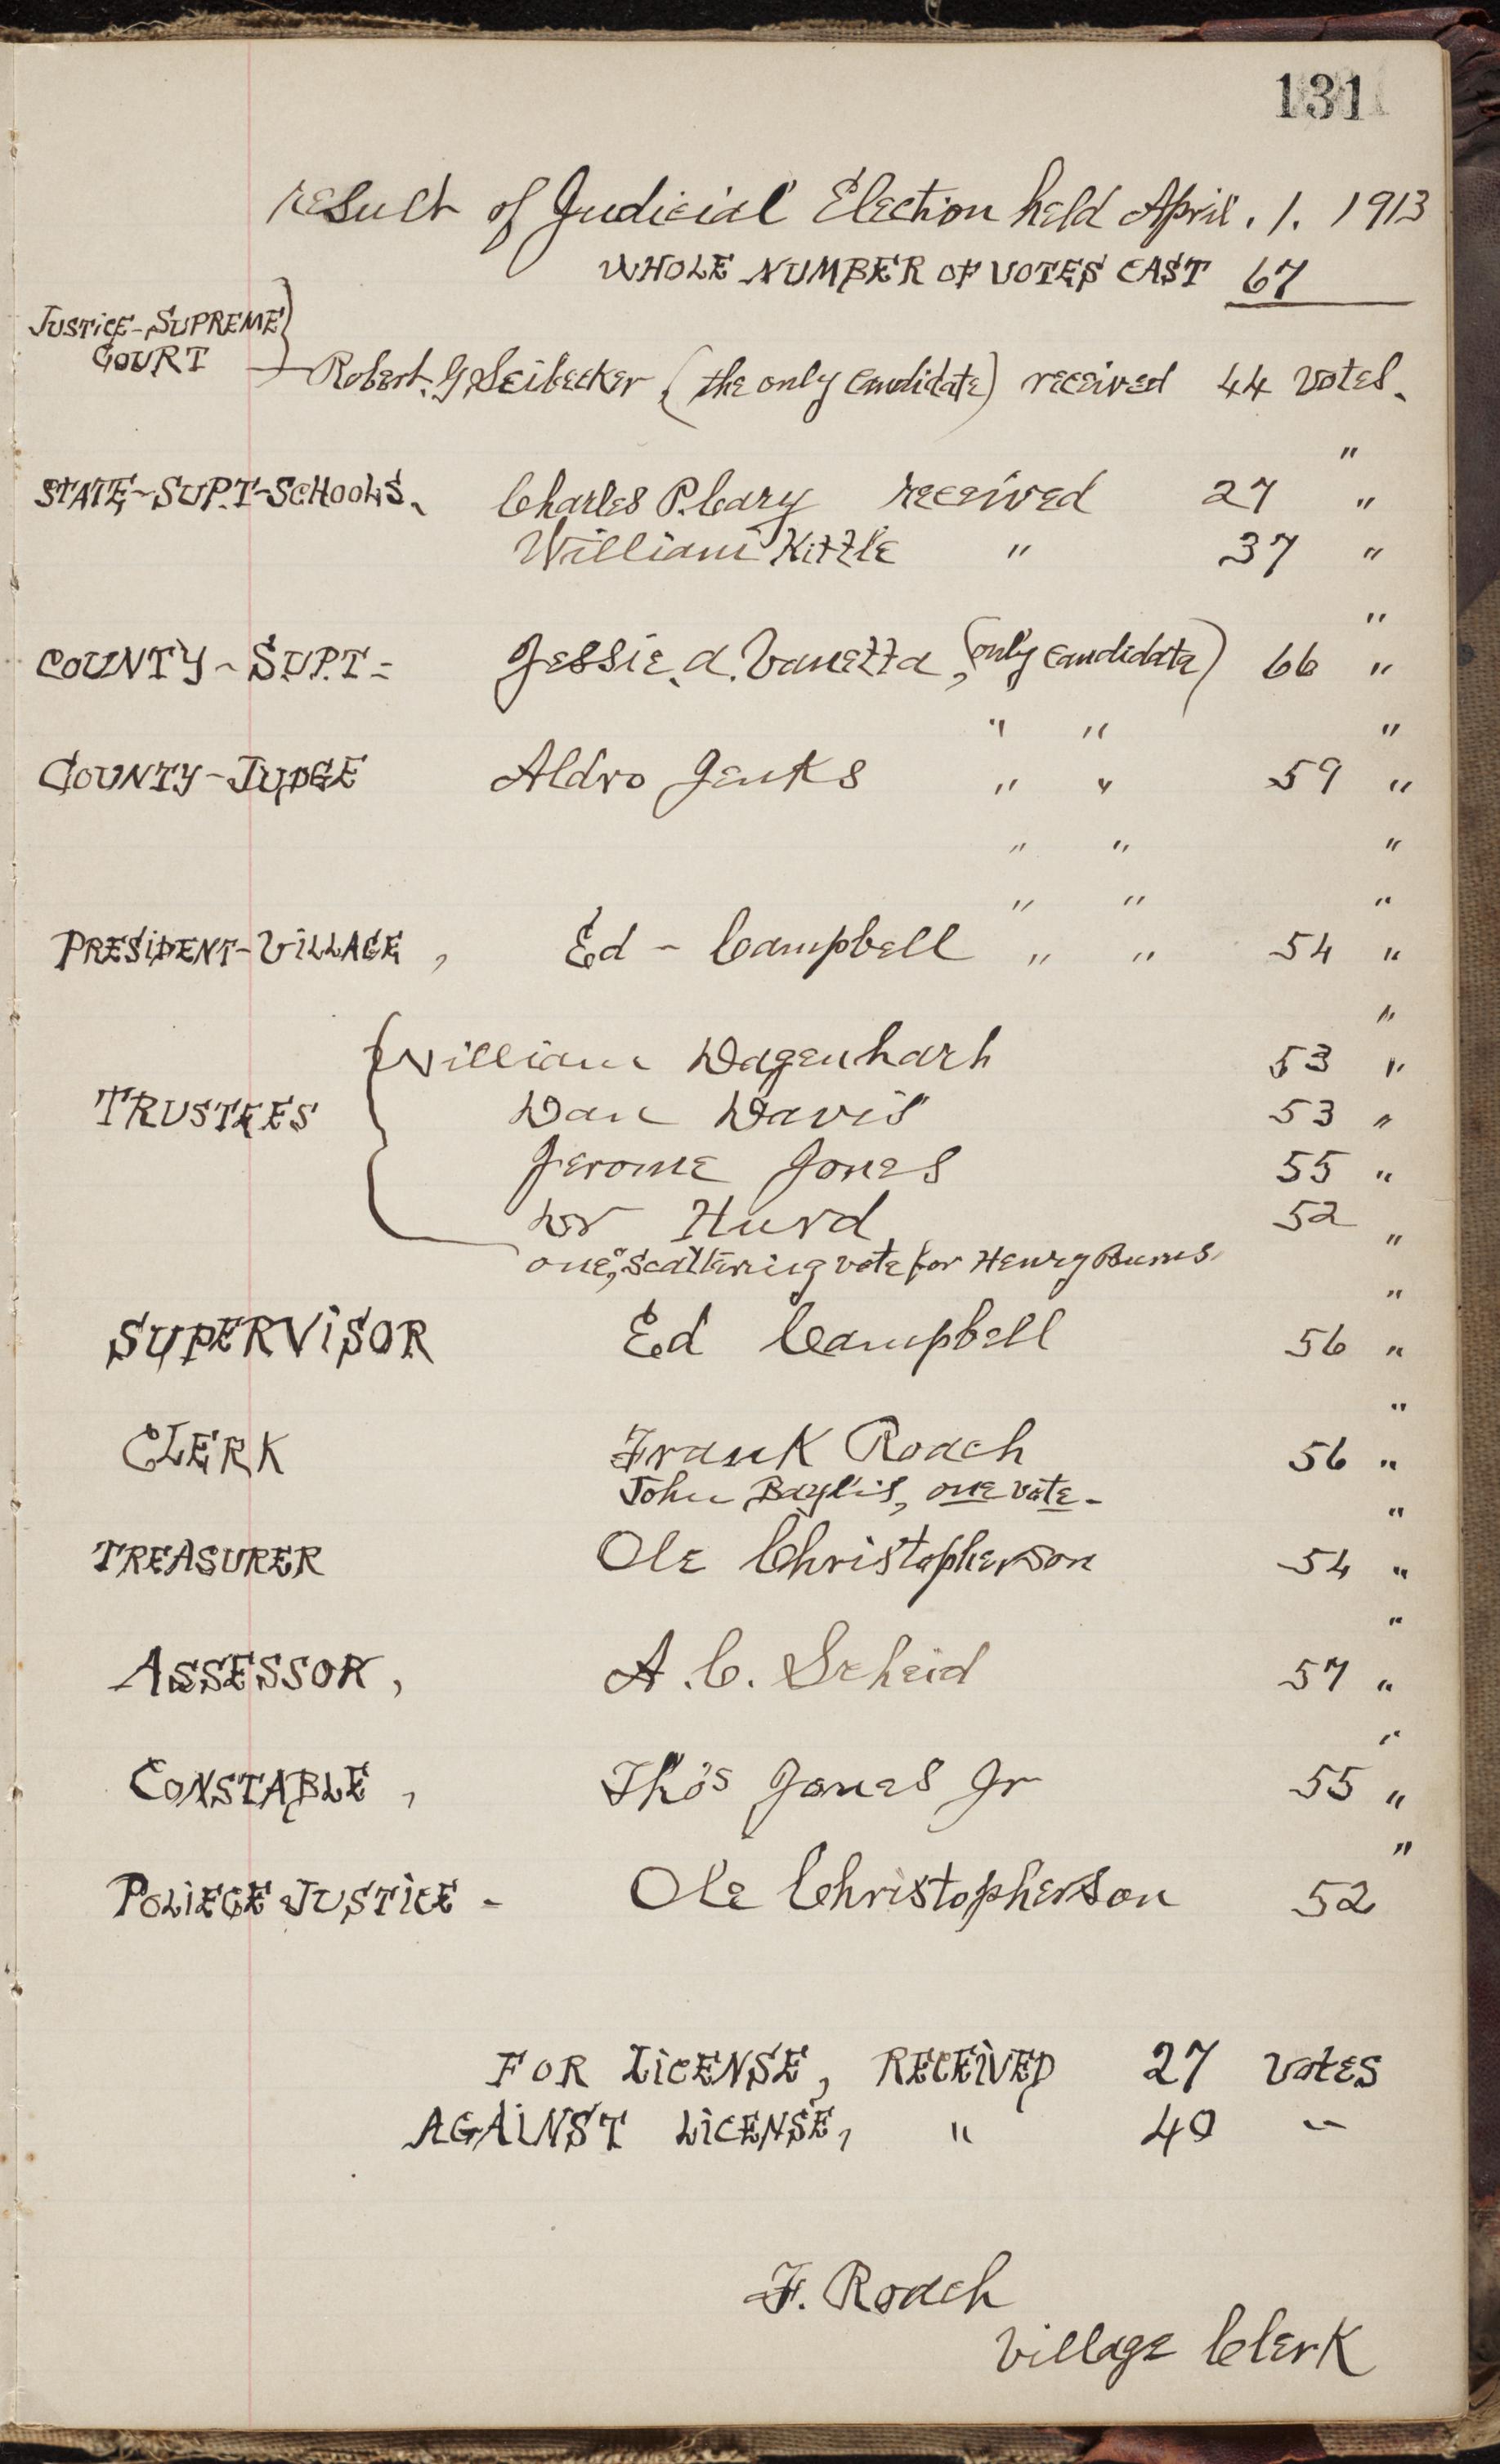 131
result of Judicial Election held April. 1. 1913
WHOLE NUMBER OF VOTES CAST 67
JUSTICE-SUPREME
COURT
Robert. G. Seibecker (the only candidate) received 44 votes.
"
STATE-SUP.T-SCHOOLS. Charles P. Cary received 27 "
William Kittle " 37 "
"
COUNTY-SUP.T- Jessie. a. Vanetta, (only candidate) 66 "
" " "
COUNTY-JUDGE Aldro Jenks " " 59 "
" " "
" " "
PRESIDENT-VILLAGE, Ed - Campbell " " 54 "
"
William Dagenhart 53 "
TRUSTEES Dan Davis 53 "
Jerome Jones 55 "
Dr Hurd 52 "
one, scattering vote for Henry Burns.
"
SUPERVISOR Ed Campbell 56 "
"
CLERK Frank Roach 56 "
John Baylis, one vote- "
TREASURER Ole Christopherson 54 "
"
ASSESSOR, A. C. Scheid 57 "
"
CONSTABLE, Thos Jones Jr 55 "
"
POLIECE JUSTICE - Ole Christopherson 52
FOR LICENSE, RECEIVED 27 votes
AGAINST LICENSE, " 40 "
F. Roach
Village Clerk